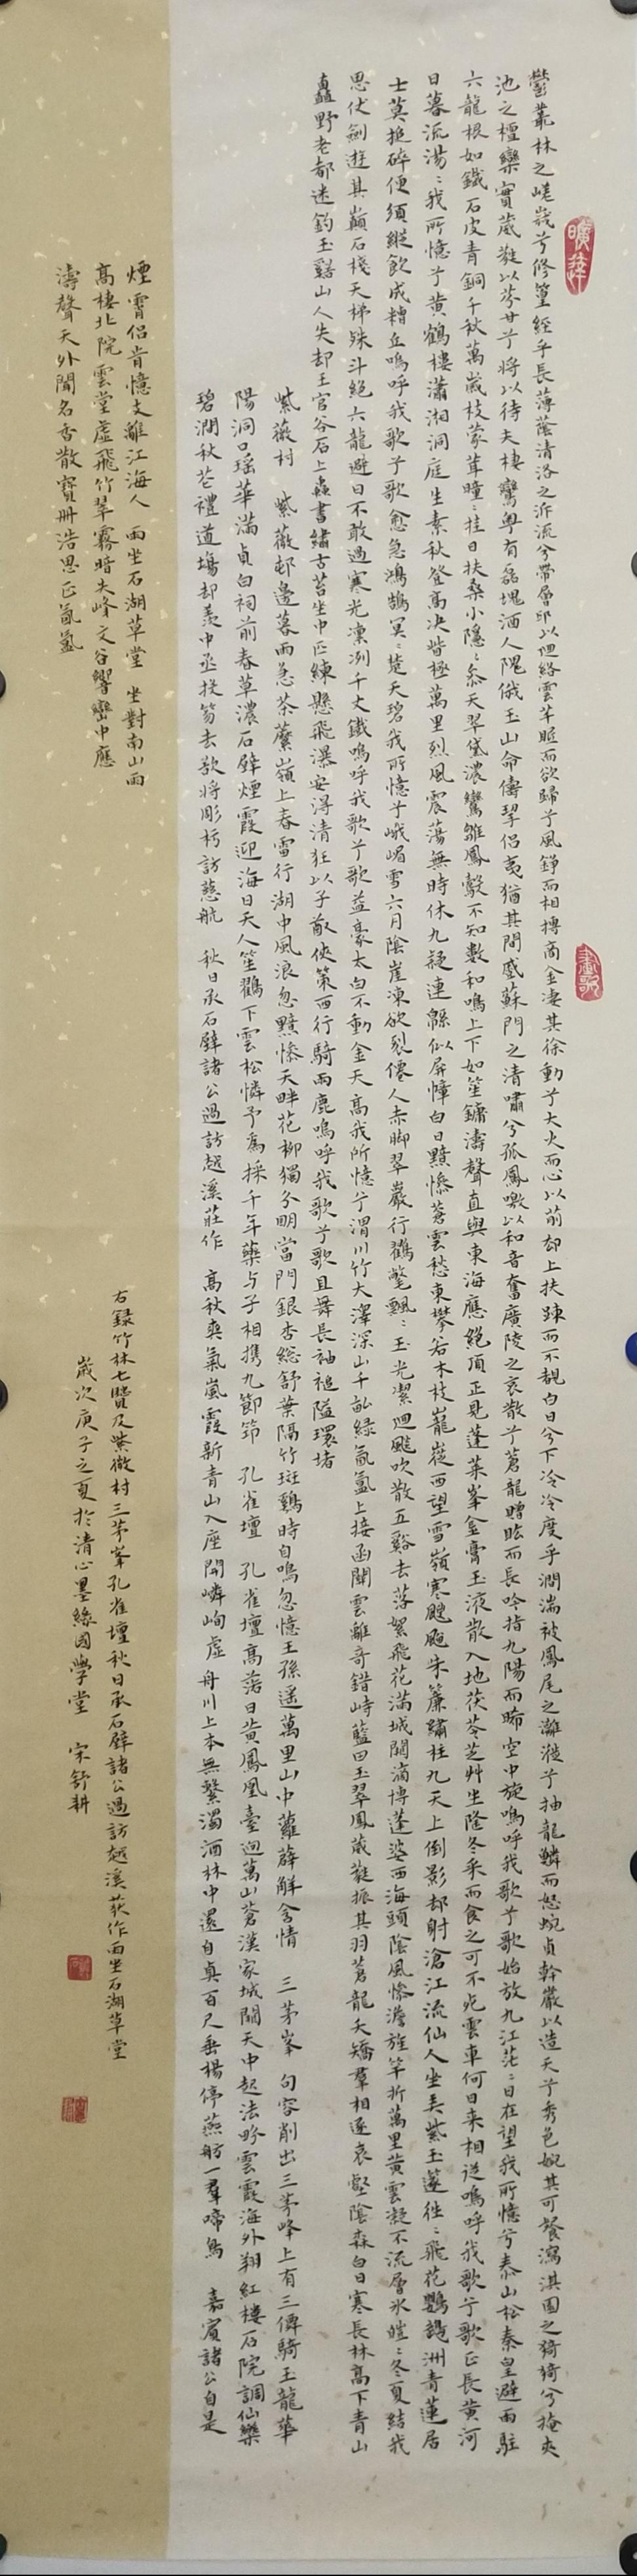 鬱叢林之嵯峩兮修篁經乎長薄蔭清洛之沂流兮帶層邱以迴絡雲芊眠而欲歸兮風錚而相搏商金凄其徐動兮大火而心以前却上扶踈而不覩白日兮下泠冷度乎澗湍被鳳尾之灕褷兮抽龍鱗而怒蜿貞幹巖以造天兮秀色婉其可餐瀉淇園之猗猗兮掩夾
池之檀欒實葳蕤以芬甘兮將以待夫棲鸞奥有磊塊酒人隗俄玉山命儔挈侣夷猶其間感蘇門之清嘯兮孤鳳噭以和音奮廣陵之哀散兮蒼龍瞪眙而長吟指九陽而晞空中旋嗚呼我歌兮歌始放九江茫茫日在望我所憶兮泰山松秦皇避雨駐
六龍根如鐵石皮青銅千秋萬歲枝蒙茸曈曈挂日扶桑小隱隱叅天翠黛濃鸞雛鳳鷇不知數和鳴上下如笙鏞濤聲直與東海應絕頂正見蓬萊峯金膏玉液散入地茯苓芝艸生隆冬采而食之可不死雲車何日来相從嗚呼我歌兮歌正長黄河
日暮流湯湯我所憶兮黄鶴樓瀟湘洞庭生素秋登高決眥極萬里烈風震蕩無時休九疑連緜似屏幛白日黲慘蒼雲愁東攀若木枝巃嵸西望雪嶺寒颼飀朱簾繡柱九天上倒影却射滄江流仙人坐弄紫玉篴徃徃飛花鸚䳇洲青蓮居
士莫搥碎便須縱飲成糟丘嗚呼我歌兮歌愈急鴻鵠冥冥楚天碧我所憶兮峨嵋雪六月陰崖凍欲裂僊人赤脚翠巖行鶴氅飄飄玉光潔迴飈吹散五谿去落絮飛花滿城闕滴博蓬婆西海頭陰風慘澹旌竿折萬里黄雲凝不流層氷皚皚冬夏結我
思伏劍遊其巔石棧天梯殊斗絕六龍避日不敢過寒光凜冽千丈鐵嗚呼我歌兮歌益豪太白不動金天高我所憶兮渭川竹大澤深山千畝綠氤氳上接函關雲離奇錯峙藍田玉翠鳳葳蕤振其羽蒼龍夭矯羣相逐哀壑陰森白日寒長林高下青山
矗野老都迷釣玉谿山人失却王官谷石上蟲書繡古苔坐中匹練懸飛瀑安得清狂以子猷俠策西行騎雨鹿嗚呼我歌兮歌且舞長袖褪隘環堵
紫薇村 紫薇邨邊暮雨急茶䕷嶺上春雷行湖中風浪忽黲慘天畔花柳獨分明當門銀杏総舒葉隔竹斑鷄時自鳴忽憶王孫遥萬里山中蘿薜解含情 三茅峯 句容削出三茅峰上有三僊騎玉龍華
陽洞口瑶華滿貞白祠前春草濃石壁煙霞迎海日天人笙鶴下雲松憐予爲採千年藥与子相携九節筇 孔雀壇 孔雀壇高落日黄鳳凰臺迥萬山蒼漢家城闕天中起法吟雲霞海外翔紅樓石院調仙樂
碧澗秋花禮道塲却羨中丞投笏去欲將彫朽訪慈航 秋日承石壁諸公過訪越溪莊作 高秋爽氣嵐霞新青山入座開嶙峋虛舟川上本無繫濁酒林中還自真百尺垂楊停燕舫一羣啼鳥 嘉賓諸公自是
煙霄侣肯憶支離江海人 雨坐石湖草堂 坐對南山雨
高棲北院雲堂虛飛竹翠霧暗失峰文谷響巒中應
濤聲天外聞名香散寳冊浩思正氤氳
右録竹林七贒及紫微村三茅峯孔雀壇秋日承石壁諸公過訪越溪荻作雨坐石湖草堂
歲次庚子之夏於清心墨緣國學堂 宋舒耕